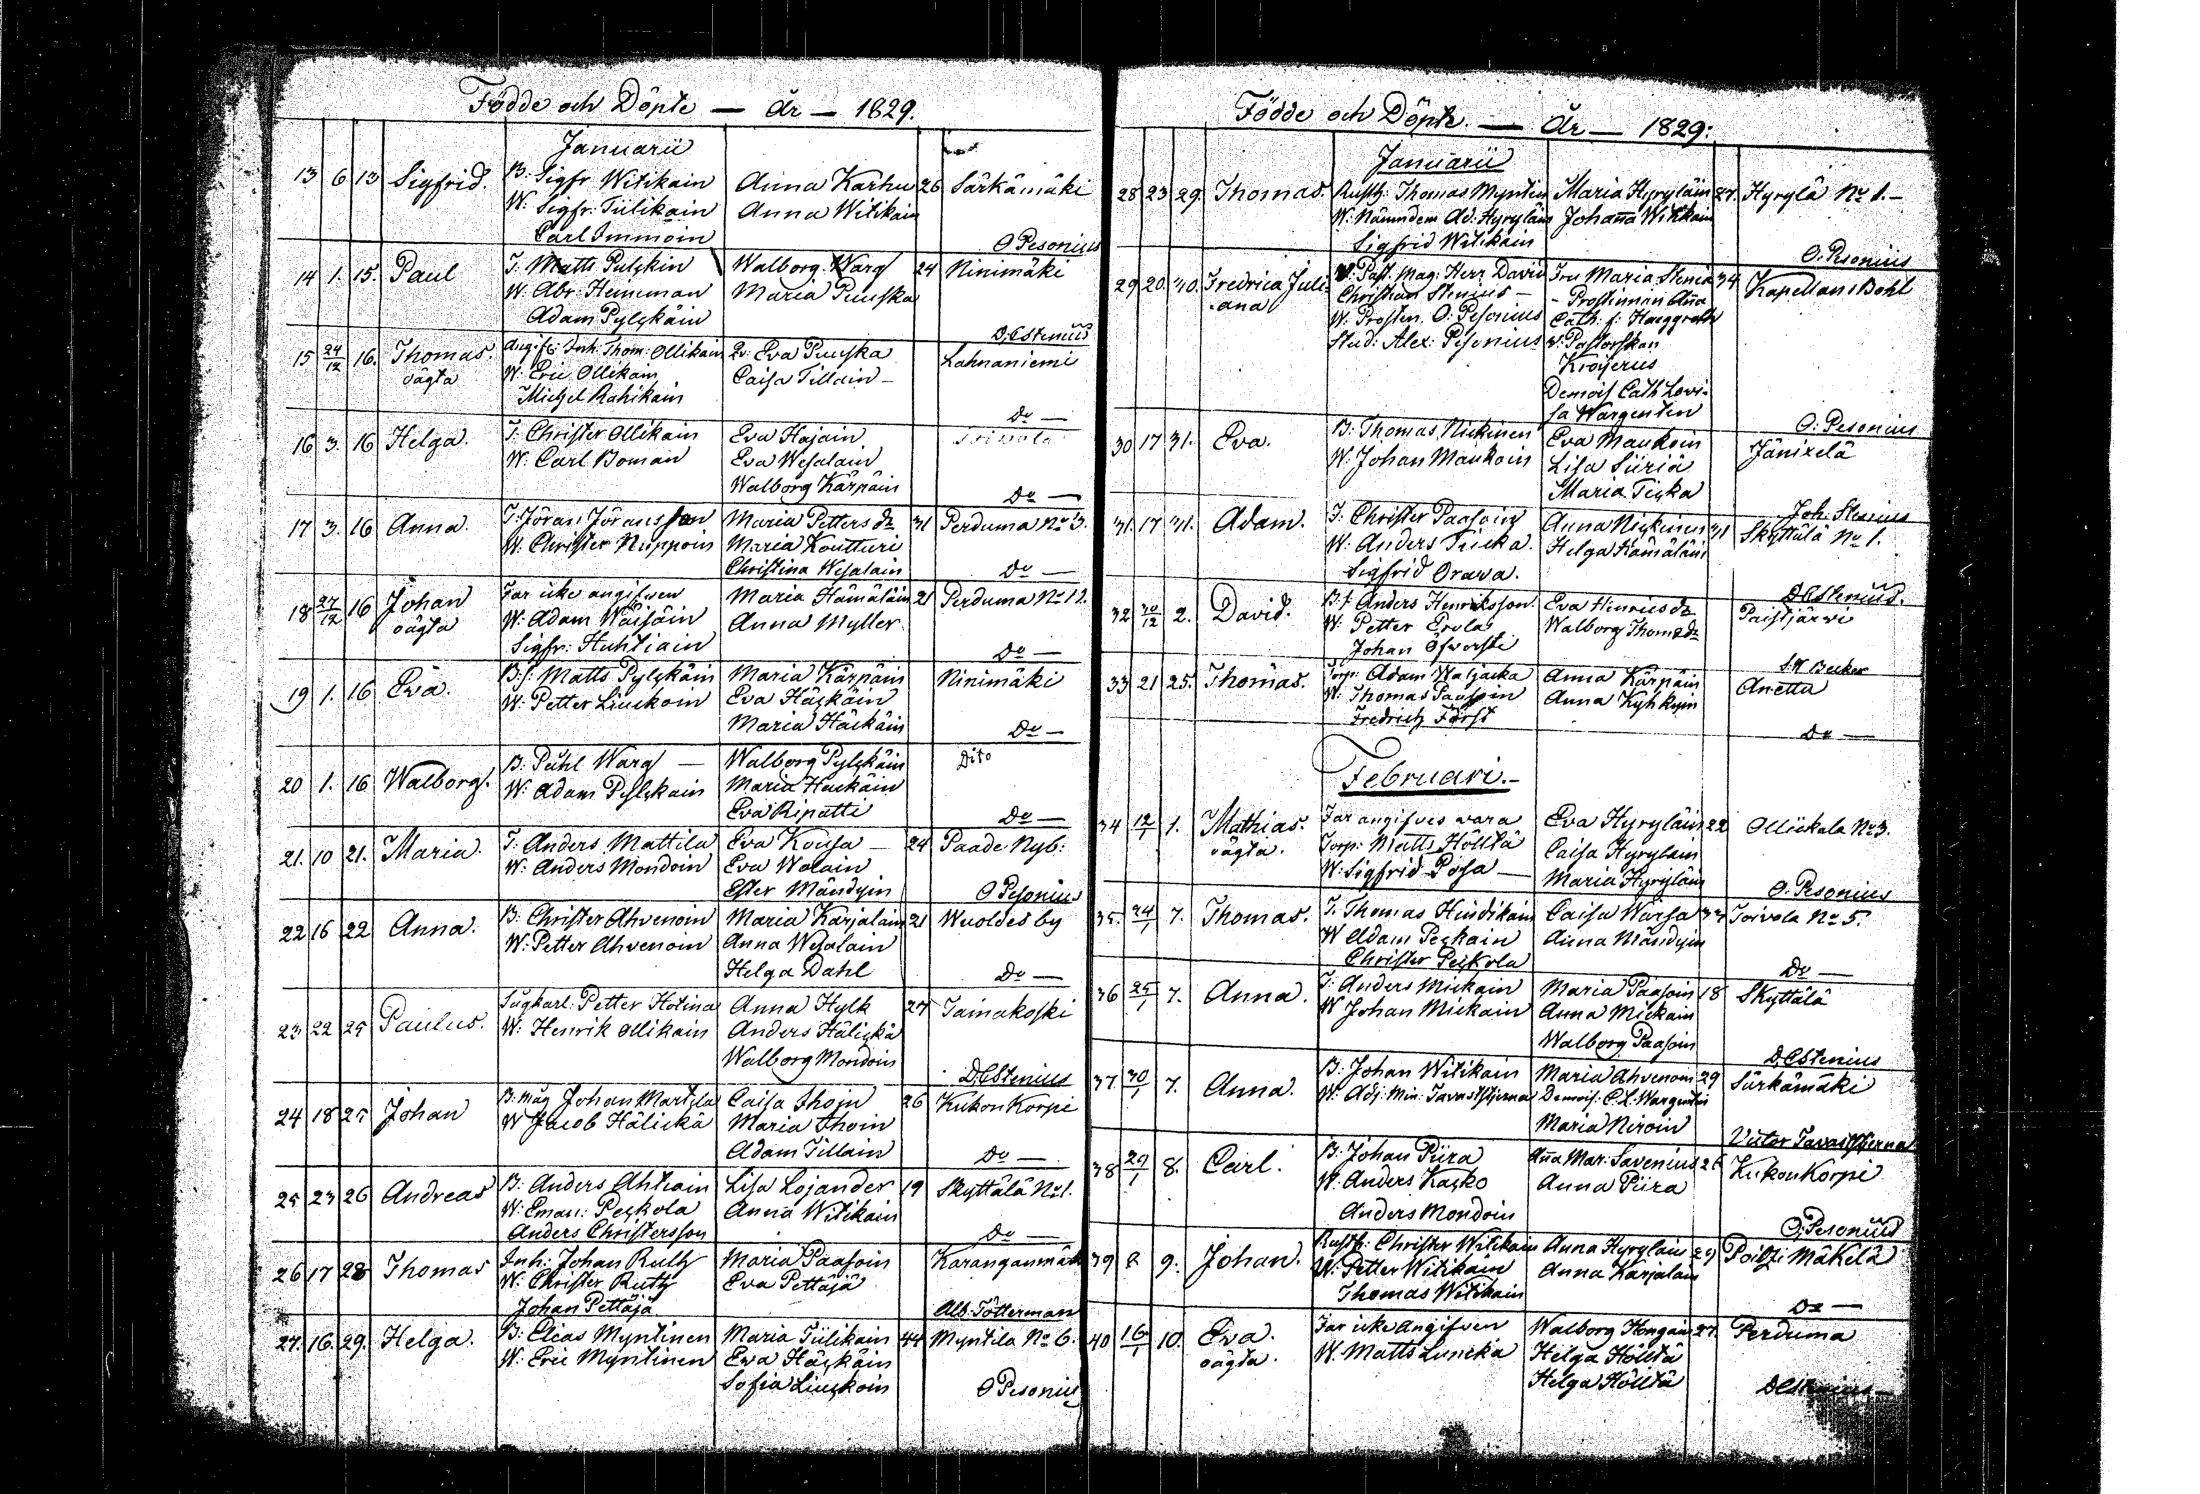 Födde och Döpte — År — 1829.
Januarii
13 6 13 Sigfrid. B: Sigfr Witikain Anna Karhu 26 Särkämäki
W: Sigfr: Tiilikain Anna Witikain
Carl Immoin O Pesonius
14 1. 15. Paul T: Matts Pulzkin Walborg Warg 24 Ninimäki
W: Abr: Heinman Maria Puuska
Adam Pylzkäin D.C Stenius
15 24/12 16. Thomas. Angifn: Inh: Thom: Ollikain Q: Eva Puuska Lahnaniemi
oägta W: Eric Ollikain Caisa Tillain —
Michel Rahikain Do —
16 3. 16 Helga. T: Christer Ollikain Eva Hajain Toivola
W: Carl Boman Eva Wesalain
Walborg Kärpäin Do —
17 3. 16 Anna. T: Jöran Jöransson Maria Petters dr 31 Perduma No 3.
W: Christer Nuppoin Maria Koutturi
Christina Wesalain Do —
18 27/12 16 Johan Far icke angifwen Maria Hämäläin 21 Perduma No 12.
oägta W: Adam Wäisäin Anna Myller
Sigfr: Huhtiain Do —
19 1. 16 Eva. B: f: Matts Pylzkäin Maria Kärpäin Ninimäki
W: Petter Liuckoin Eva Häskäin
Maria Häckäin Do —
20 1. 16 Walborg. B: Påhl Warg — Walborg Pylzkäin Dito
W: Adam Pylzkain Maria Hackäin
Eva Ripatti Do —
21. 10 21. Maria. T: Anders Mattila Eva Kousa — 24 Paade Nyb:
W: Anders Mondoin Eva Walain
Ester Mändyin O Pesonius
22 16 22 Anna. B: Christer Ahvenoin Maria Karjalain 21 Wuoldes by
W: Petter Ahvenoin Anna Wesalain
Helga Dahl Do —
23 22 25 Paulus. Sågkarl: Petter Hotina Anna Hylk 27 Tainakoski
W: Henrik Ollikain Anders Hälickä
Walborg Mondoin D.C Stenius
24 18 25 Johan B: måg Johan Martzla Caisa Ihoin 26 KukonKorpi
W Jacob Hälickä Maria Ihoin
Adam Tillain Do —
25 23 26 Andreas B: Anders Ahtiain Lisa Lojander 19 Skyttälä No 1.
W: Eman: Peskola Anna Witikain
Anders Christersson Do —
26 17 28 Thomas Inh: Johan Ruth Maria Paasoin Karanganmäki
W: Christer Ruth Eva Pettäjä
Johan Pettäjä Alb: Tötterman
27. 16. 29. Helga. B: Elias Myntinen Maria Tiilikain 44 Myntila No 6.
W: Eric Myntinen Eva Häskäin
Sofia Liuckoin O Pesonius
Födde och Döpte. — År — 1829:
Januarii
28 23 29. Thomas. Rusth: Thomas Myntin Maria Hyryläin 27. Hyrylä No 1. —
W: Nämndem Ad: Hyryläin Johanna Witikain
Sigfrid Witikain O: Pesonius
29 20 30. Fredrica Juli V: Past. Mag: Herr David Fru Maria Stenia 34 Kapellans Bohl
ana Christian Stenius — - Prostinnan Anna
W: Prosten O: Pesonius Cath: f: Haeggroth
Stud: Alex: Pesonius v: Pastorskan
Kroijerus
Demois Cath Lovi-
sa Wargentin O: Pesonius
30 17 31. Eva. B: Thomas Nickinen Eva Maukoin Jänixelä
W: Johan Maukoin Lisa Siiriä
Maria Ticka Joh: Stenius
31. 17 31. Adam. T: Christer Paasoin Anna Nickinen 31 Skyttälä No 1.
W: Anders Tiicka. Helga Hämäläin
Sigfrid Orawa. D C Stenius.
32 30/12 2. David. B: f: Anders Henriksson. Eva Hinrics dr Paistjärwi
W: Petter Erola Walborg Thoms dr
Johan Öfversti S.W Becker
33 21 25. Thomas. Torp: Adam Watjacka Anna Kärpäin Anetta
W: Thomas Paasoin Anna Kyhkyin
Fredrich Först Do —
Februari. —
34 12/1 1. Mathias. Far angifves vara Eva Hyryläin 22 Ollickala No 3.
oägta. Torp: Matts Hölttä Caisa Hyryläin
W: Sigfrid Posa — Maria Hyryläin O: Pesonius
35. 24/1 7. Thomas. T. Thomas Hindikain Caisa Warsa 34 Toivola No 5.
W Adam Peskain Anna Mändyin
Christer Peskola Do —
36 25/1 7. Anna. T: Anders Mickain Maria Paasoin 18 Skyttälä
W Johan Mickain Anna Mickain
Walborg Paasoin D.C Stenius
37. 30/1 7. Anna. B: Johan Witikain Maria Ahvenoin 29 Särkämäki
W: Adj: Min: Tavaststjerna Demois: C: L: Wargentin
Maria Niroin Victor Tavaststjerna
38 29/1 8. Carl. B: Johan Piira Anna Mar: Savenius 26 KukonKorpi
W: Anders Kasko Anna Piira
Anders Mondoin O: Pesonius
39 8 9. Johan. Rusth: Christer Witikain Anna Hyryläin 29 Poitzi Mäkelä
W: Petter Witikain Anna Karjalain
Thomas Witikain Do —
40 16/1 10. Eva. Far icke Angifven Walborg Hongain 27. Perduma
oägta. W: Matts Luncka Helga Hölttä
Helga Hölttä D C Stenius —